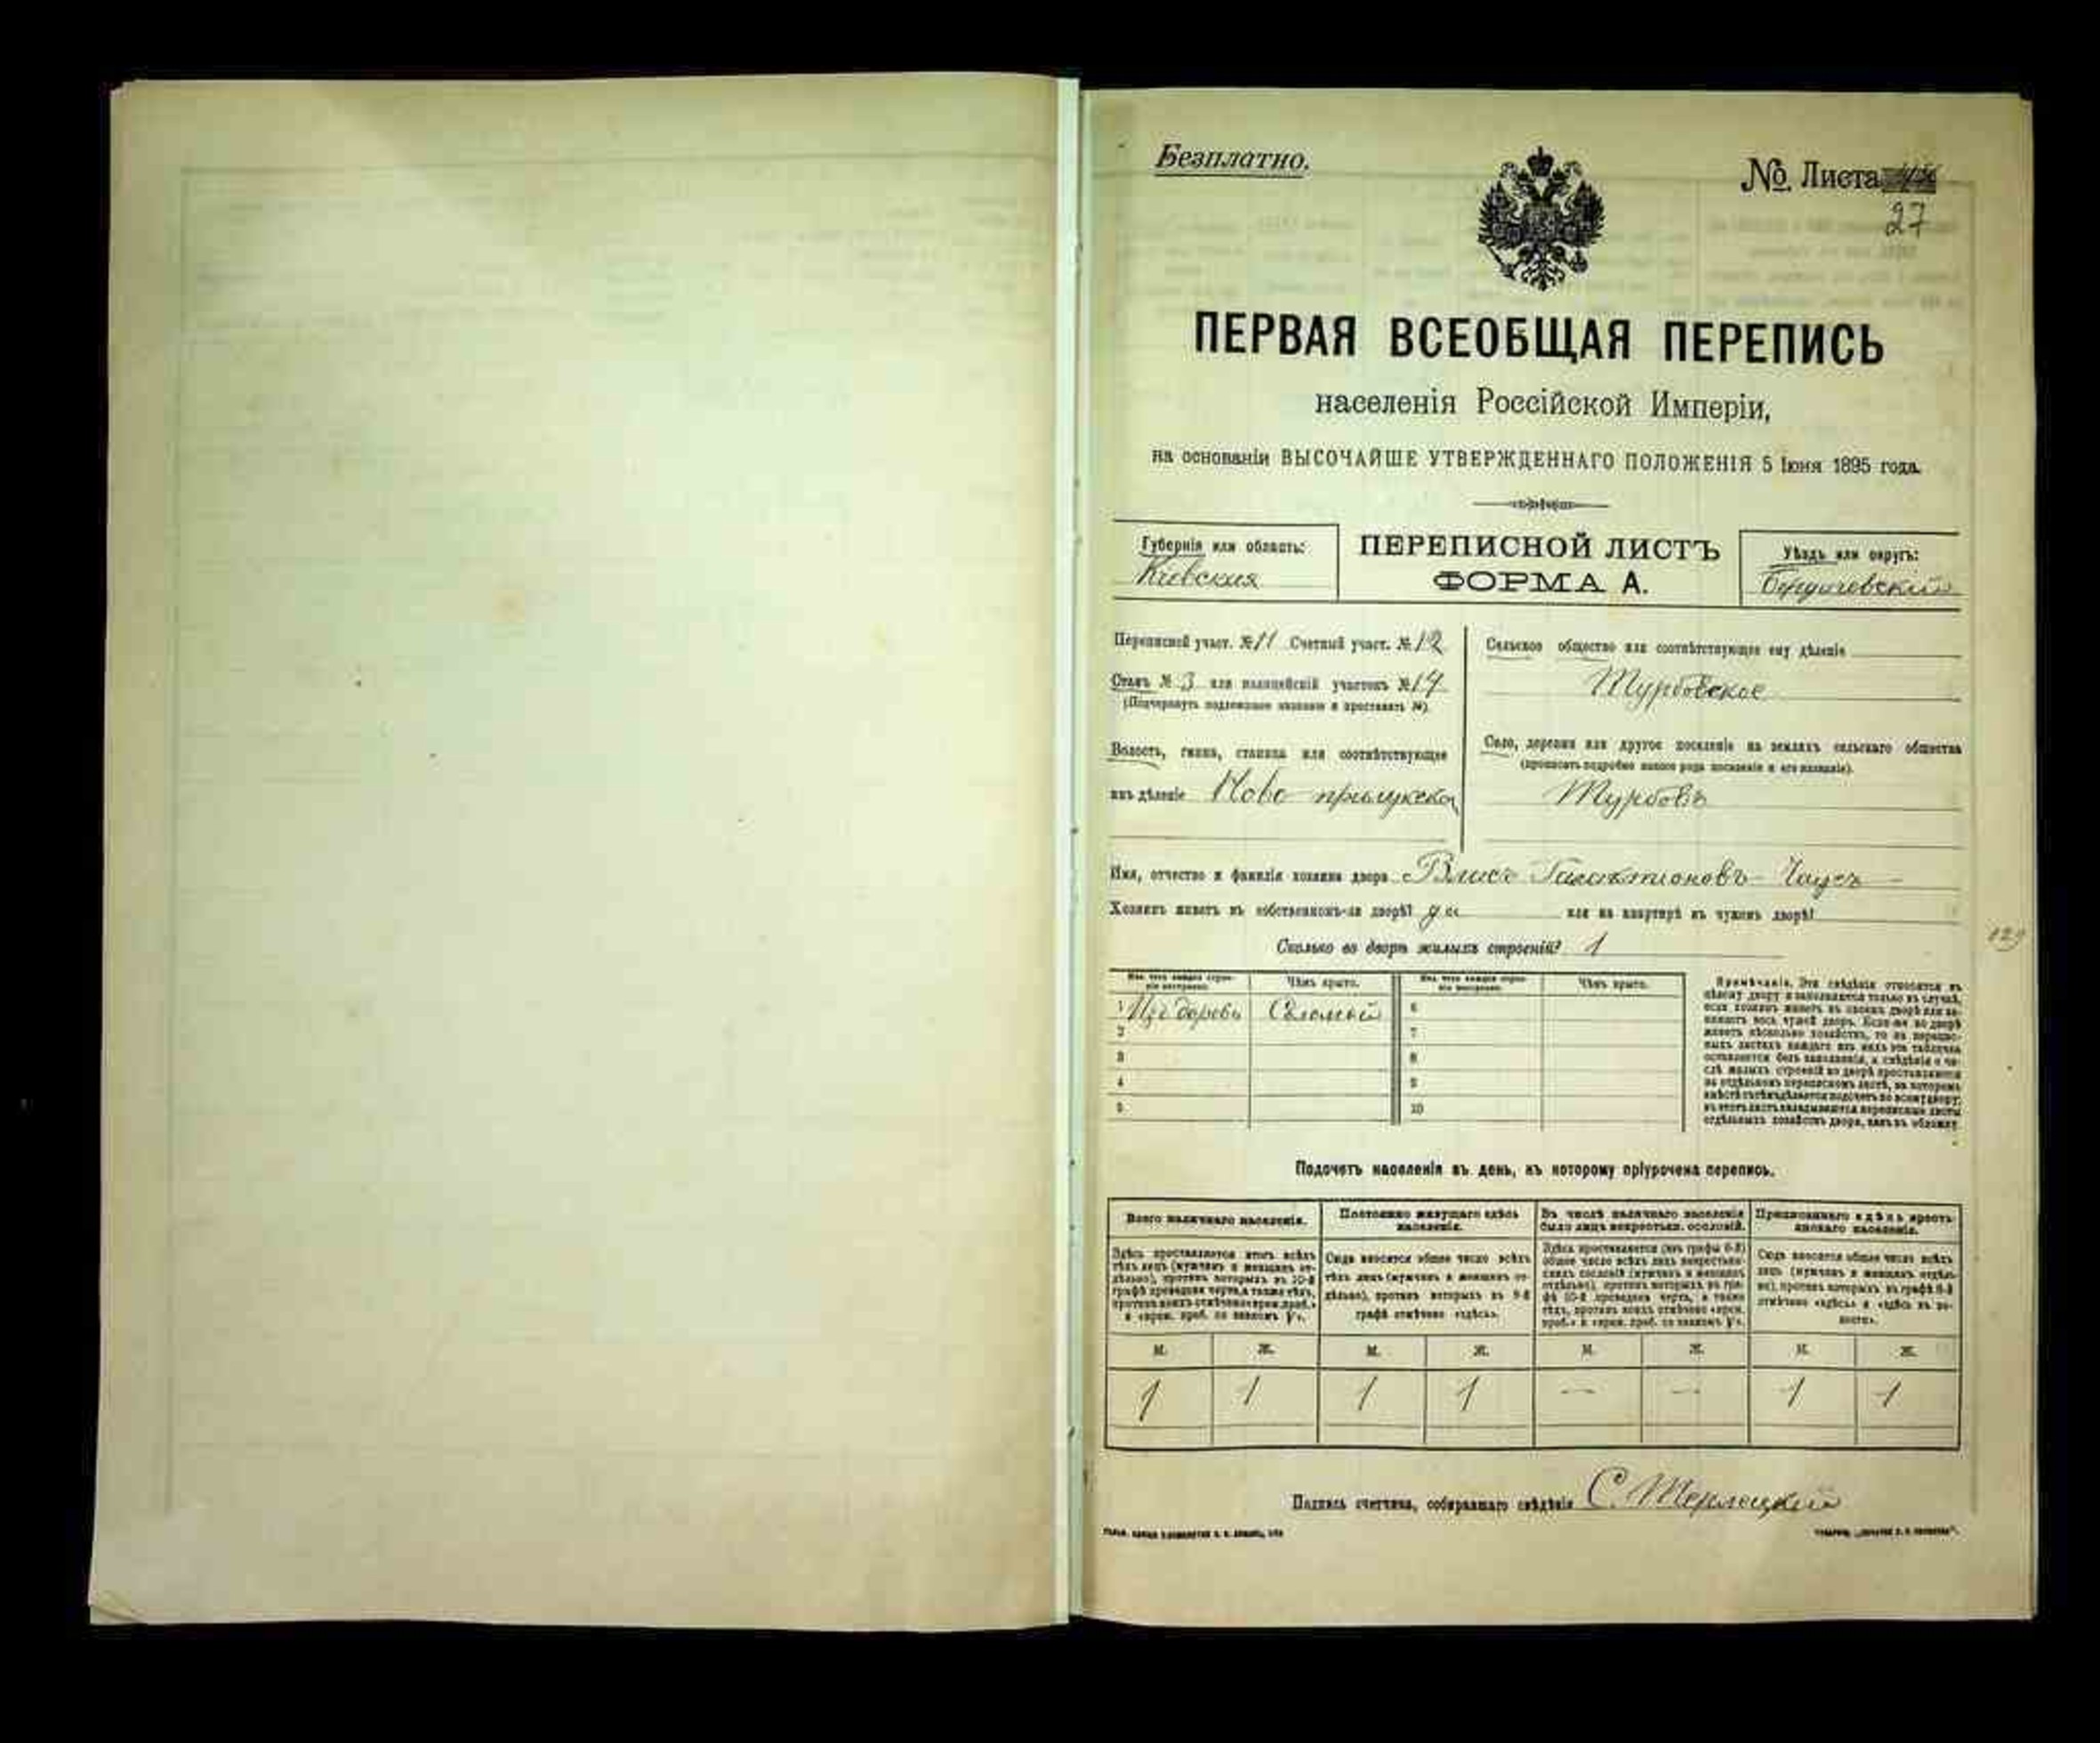 Безплатно.
№ Листа
27
ПЕРВАЯ ВСЕОБЩАЯ ПЕРЕПИСЬ
населенія Россійской Имперіи,
на основаніи ВЫСОЧАЙШЕ УТВЕРЖДЕННАГО ПОЛОЖЕНІЯ 5 Іюня 1895 года.
Губернія или область:
Кіевская
ПЕРЕПИСНОЙ ЛИСТЪ
ФОРМА А.
Уѣздъ или округъ:
Бердичевскій
Переписной участ. № 11 Счетный участ. № 12
Станъ № 3 или полицейскій участокъ № 14
(Подчеркнуть подлежащее названіе и проставить №)
Волость, гмина, станица или соотвѣтствующее
имъ дѣленіе Ново прилукская
Сельское общество или соотвѣтствующее ему дѣленіе
Турбовское
Село, деревня или другое поселеніе на земляхъ сельскаго общества
(прописать подробно какого рода поселеніе и его названіе).
Турбовъ
Имя, отчество и фамилія хозяина двора Власъ Галактіоновъ Чаусъ
Хозяинъ живетъ въ собственномъ-ли дворѣ? да или на квартирѣ въ чужомъ дворѣ?
129
Сколько во дворѣ жилыхъ строеній? 1
Изъ чего каждое строеніе построено. Чѣмъ крыто. Изъ чего каждое строеніе построено. Чѣмъ крыто.
1 Изъ дерева Соломой 6
2 7
3 8
4 9
5 10
Примѣчаніе. Эти свѣдѣнія относятся къ
цѣлому двору и заполняются только въ случаѣ,
если хозяинъ живетъ въ своемъ дворѣ или занимаетъ
весь чужой дворъ. Если-же во дворѣ
живетъ нѣсколько хозяйствъ, то на переписныхъ
листахъ каждаго изъ нихъ эта табличка
оставляется безъ заполненія, а свѣдѣнія о числѣ
жилыхъ строеній во дворѣ проставляются
на отдѣльномъ переписномъ листѣ, на которомъ
вмѣстѣ съ тѣмъ дѣлается подсчетъ по всему двору;
въ этотъ листъ вкладываются переписные листы
отдѣльныхъ хозяйствъ двора, какъ въ обложку.
Подсчетъ населенія въ день, къ которому пріурочена перепись.
Всего наличнаго населенія.
Постоянно живущаго здѣсь населенія.
Въ числѣ наличнаго населенія было лицъ некрестьян. сословій.
Приписаннаго здѣсь крестьянскаго населенія.
Здѣсь проставляется итогъ всѣхъ
тѣхъ лицъ (мужчинъ и женщинъ отдѣльно),
противъ которыхъ въ 10-й
графѣ проведена черта, а также тѣхъ,
противъ коихъ отмѣчено «врем. преб.»
и «врем. преб. со знакомъ V».
Сюда вносится общее число всѣхъ
тѣхъ лицъ (мужчинъ и женщинъ отдѣльно),
противъ которыхъ въ 9-й
графѣ отмѣчено «здѣсь».
Здѣсь проставляется (изъ графы 6-й)
общее число всѣхъ лицъ некрестьянскихъ
сословій (мужчинъ и женщинъ
отдѣльно), противъ которыхъ въ графѣ
10-й проведена черта, а также
тѣхъ, противъ коихъ отмѣчено «врем.
преб.» и «врем. преб. со знакомъ V».
Сюда вносится общее число всѣхъ
лицъ (мужчинъ и женщинъ отдѣльно),
противъ которыхъ въ графѣ 8-й
отмѣчено «здѣсь» и «здѣсь въ волости».
М. Ж. М. Ж. М. Ж. М. Ж.
1 1 1 1 — — 1 1
Подпись счетчика, собиравшаго свѣдѣнія С. Терлецкій